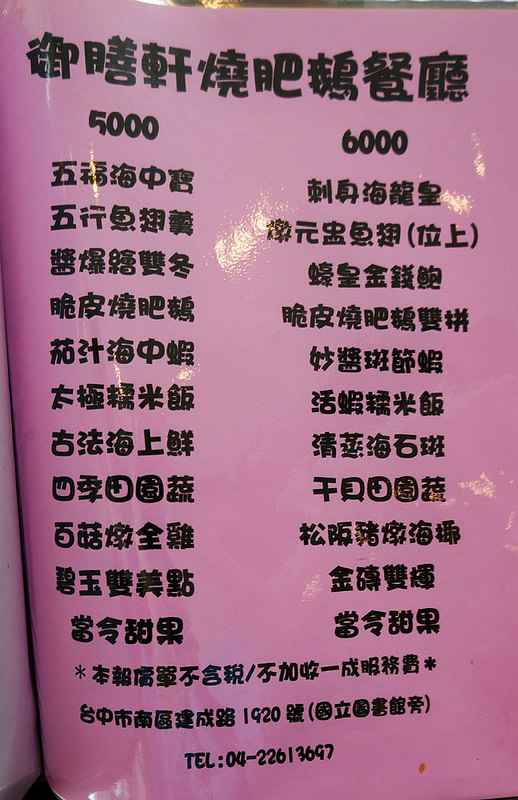 御膳軒燒肥鵝餐廳
5000
五福海中寶
五行魚翅羹
醬爆繪雙冬
脆皮燒肥鵝
茄汁海中蝦
太極糯米飯
古法海上鮮
四季田園蔬
百菇燉全雞
碧玉雙美點
當令甜果
6000
刺身海龍皇
燉元盅魚翅(位上)
蠔皇金錢鮑
脆皮燒肥鵝雙拼
妙醬斑節蝦
活蝦糯米飯
清蒸海石斑
干貝田園蔬
松阪豬燉海椰
金磚雙輝
當令甜果
*本報價單不含稅/不加收一成服務費*
台中市南區建成路 1920 號(國立圖書館旁)
TEL:04-22613697